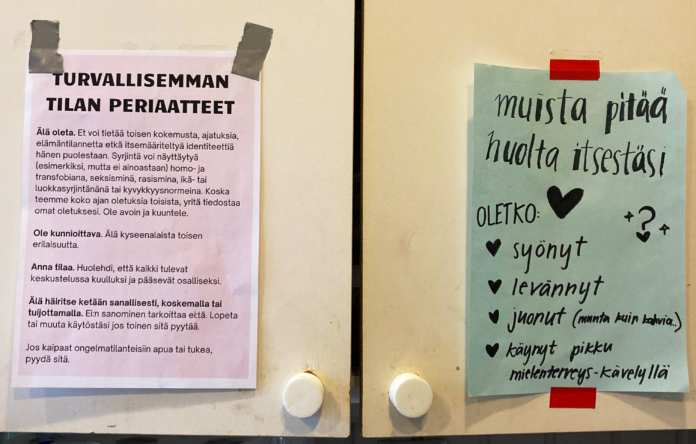 TURVALLISEMMAN
TILAN PERIAATTEET
Älä oleta. Et voi tietää toisen kokemusta, ajatuksia,
elämäntilannetta etkä itsemääriteltyä identiteettiä
hänen puolestaan. Syrjintä voi näyttäytyä
(esimerkiksi, mutta ei ainoastaan) homo- ja
transfobiana, seksisminä, rasismina, ikä- tai
luokkasyrjintänänä tai kyvykkyysnormeina. Koska
teemme koko ajan oletuksia toisista, yritä tiedostaa
omat oletuksesi. Ole avoin ja kuuntele.
Ole kunnioittava. Älä kyseenalaista toisen
erilaisuutta.
Anna tilaa. Huolehdi, että kaikki tulevat
keskustelussa kuulluksi ja pääsevät osalliseksi.
Älä häiritse ketään sanallisesti, koskemalla tai
tuijottamalla. Ei:n sanominen tarkoittaa ei:tä. Lopeta
tai muuta käytöstäsi jos toinen sitä pyytää.
Jos kaipaat ongelmatilanteisiin apua tai tukea,
pyydä sitä.
muista pitää
huolta itsestäsi
OLETKO:
?
syönyt
levännyt
juonut (muuta kuin kahvia.)
käynyt pikku
mielenterveys-kävelyllä